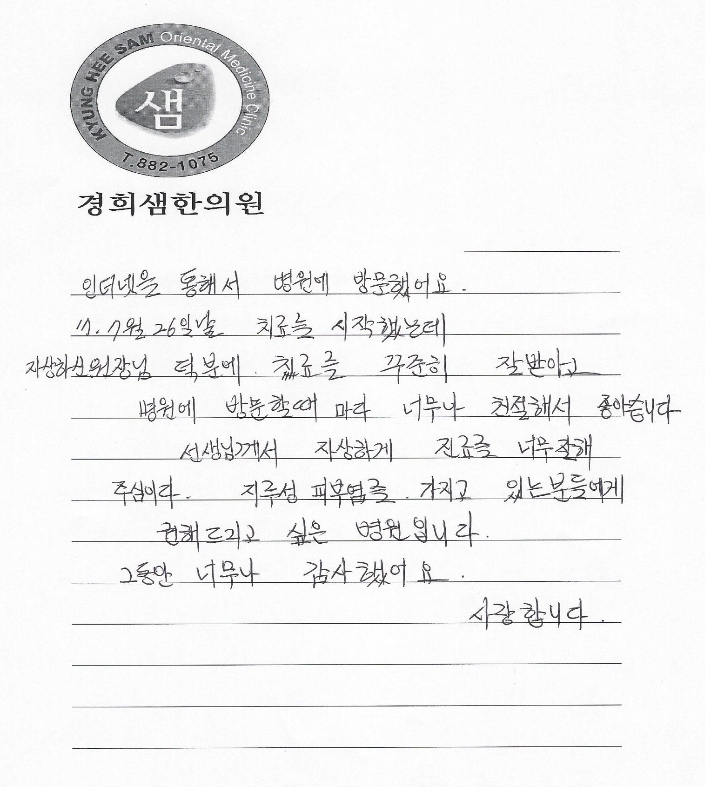 KYUNG HEE SAM Oriental Medicine Clinic
샘
T.882-1075
경희샘한의원
인터넷을 통해서 병원에 방문했어요.
11. 7월 26일날 치료를 시작했는데
자상하신 원장님 덕분에. 치료를 꾸준히 잘받아고
병원에 방문할때 마다 너무나 친절해서 좋아습니다
선생님께서 자상하게 진료를 너무잘해
주심이다. 지루성 피부염를 가지고 있는분들에게
권해드리고 싶은 병원입니다.
그동안 너무나 감사했어요.
사랑합니다.